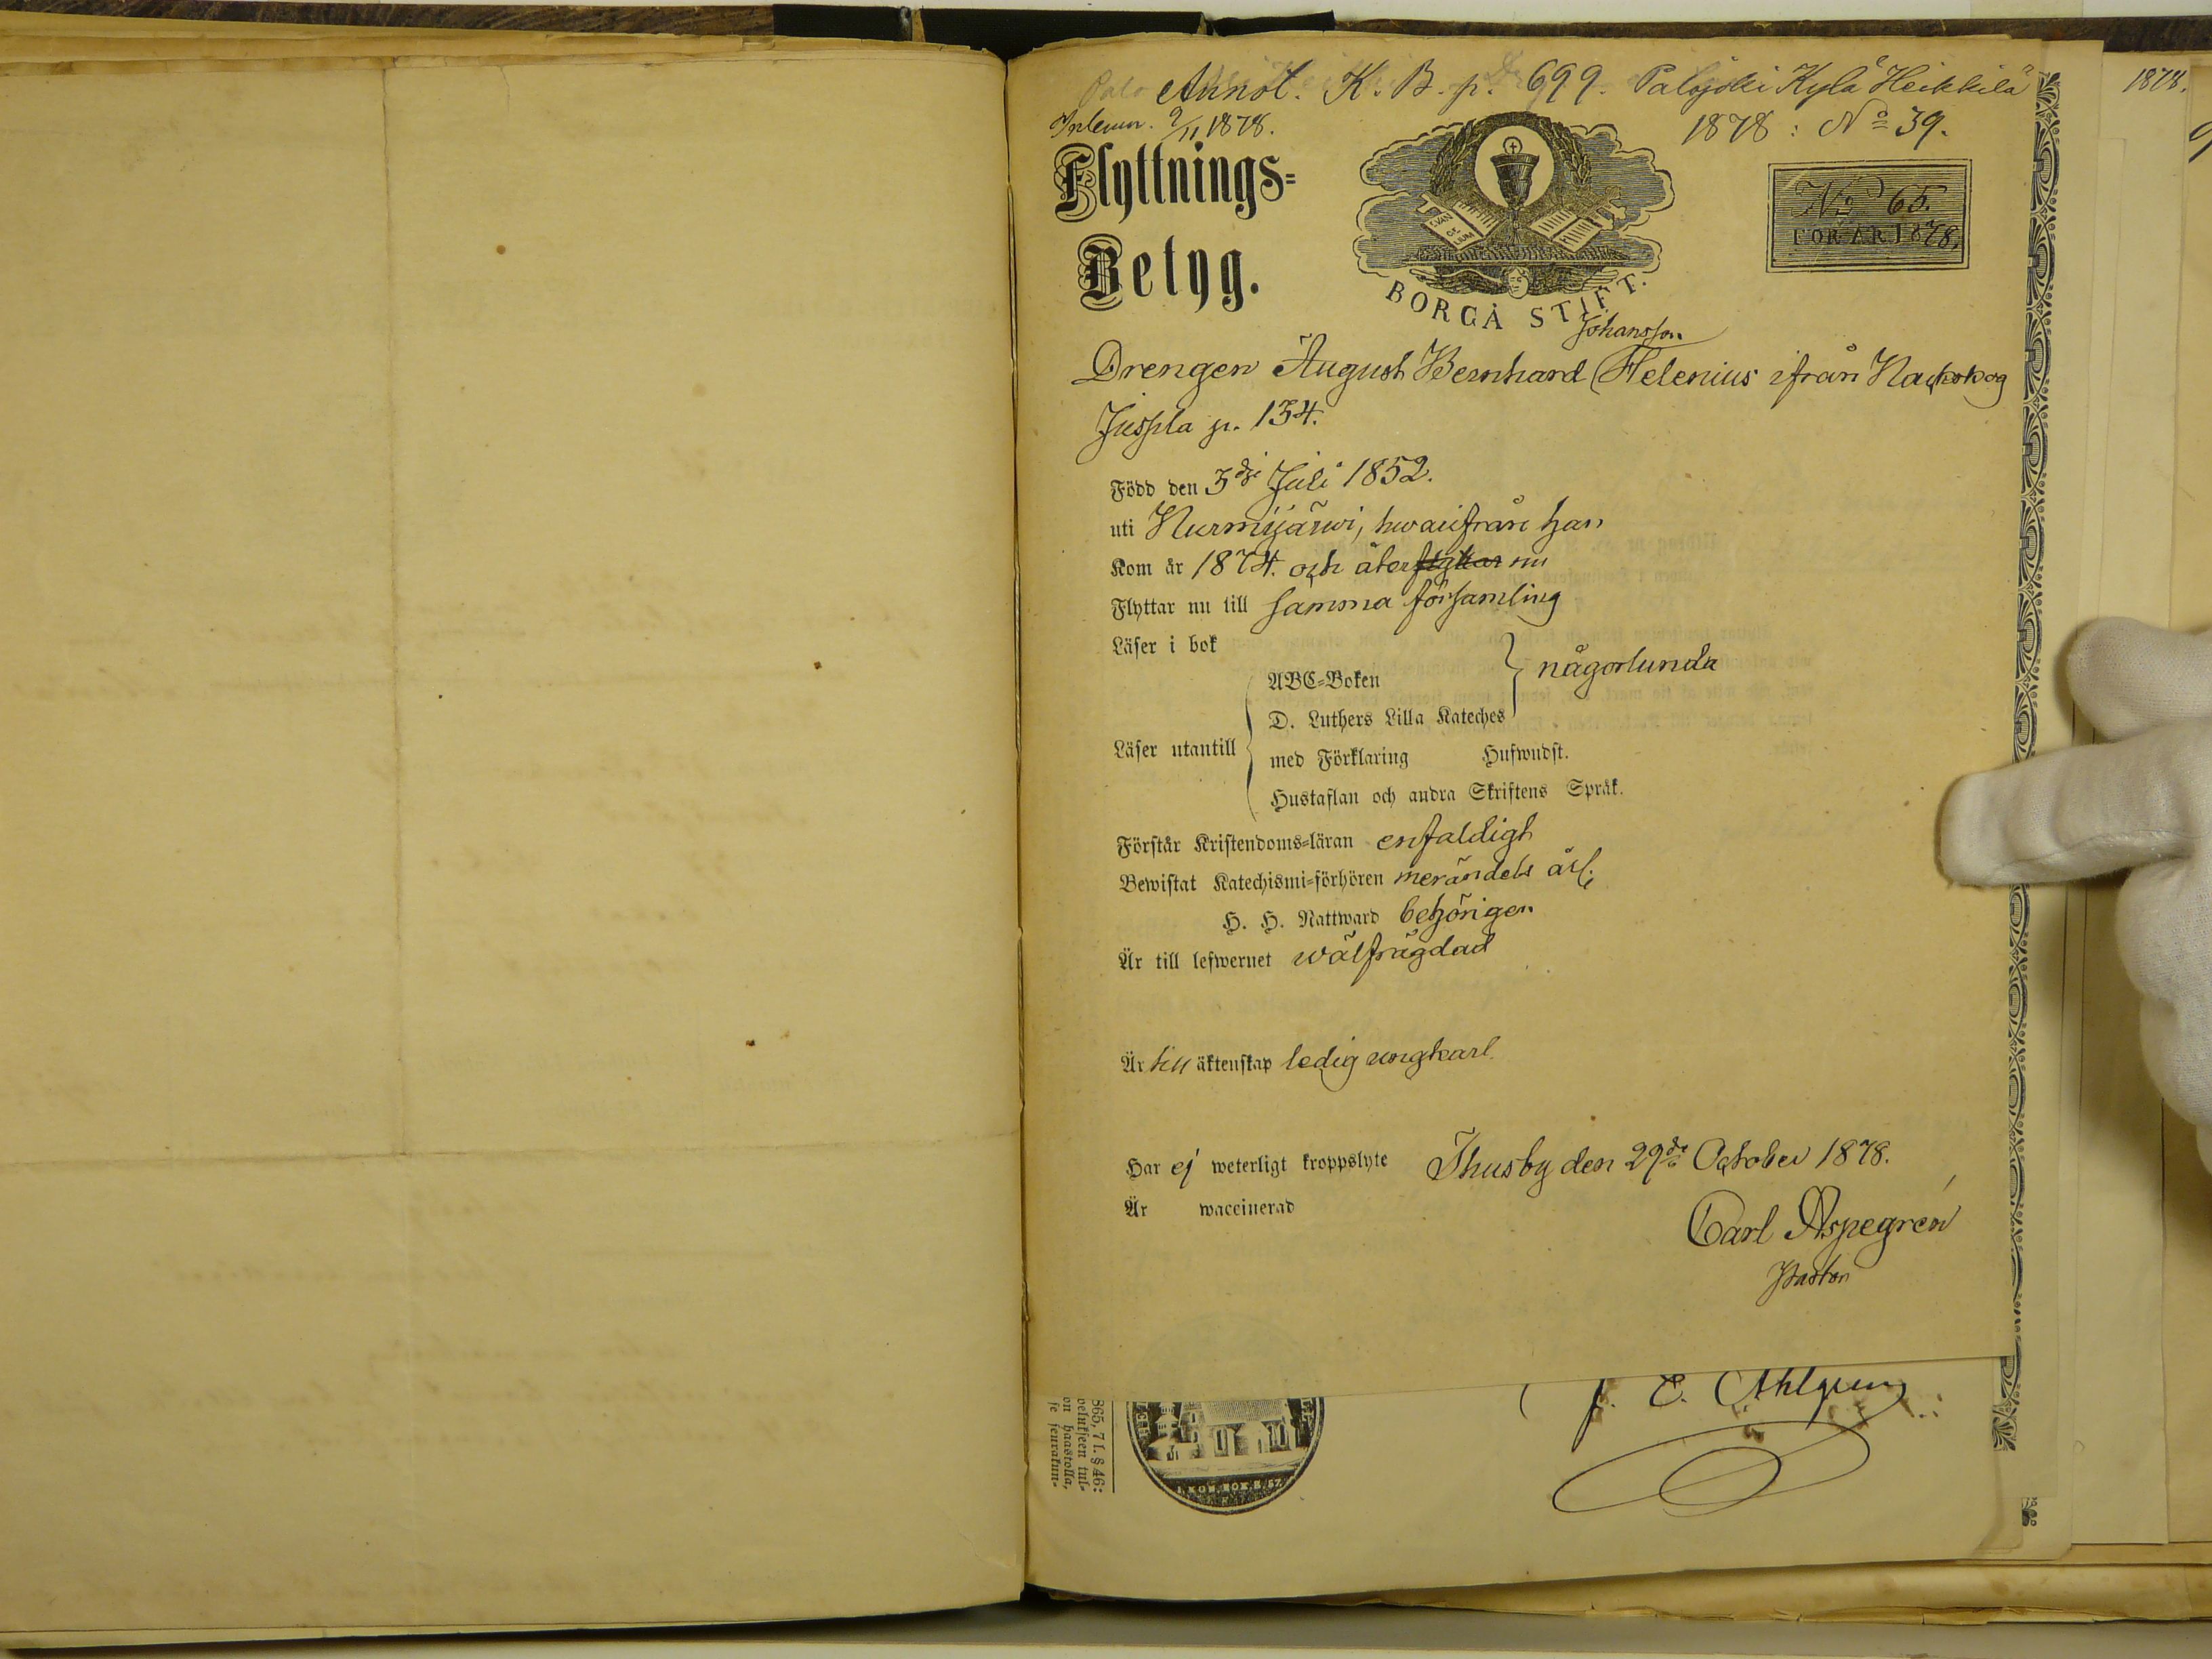 Annot. K. B. p. 699. Palojoki Kylä Heikkilä
Inlemn. 9/11 1878.
1878: No 39.
1878.
Flyttnings=
Betyg.
EVAN
GE
LIUM
BORGÅ STIFT.
No 65.
FÖR ÅR 1878,
Johansson
Drengen August Bernhard (Helenius ifrån Nackskog
Juspla p. 134.
Född den 3dje Juli 1852.
uti Nurmijärwi, hwarifrån han
Kom år 1874. och återflyttar nu
Flyttar nu till samma församling
Läser i bok
ABC=Boken
någorlunda
D. Luthers Lilla Kateches
Läser utantill
med Förklaring Hufwudst.
Hustaflan och andra Skriftens Språk.
Förstår Kristendoms=läran enfaldigt
Bewistat Katechismi=förhören merändels årl.
H. H. Nattward behörigen
Är till lefwernet wälfrägdad
Är till äktenskap ledig ungkarl.
Har ej weterligt kroppslyte Thusby den 29de October 1878.
Är waccinerad
Carl Aspegrén
Pastor
J. E. Ahlgren
865, 7 l. § 46: